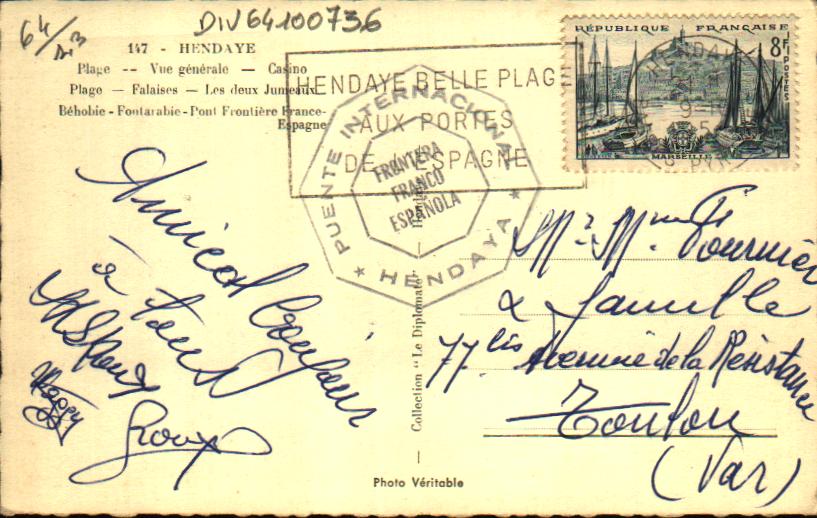 DIV64100736
64/
147 - HENDAYE
Plage -- Vue générale — Casino
Plage — Falaises — Les deux Jumeaux
Béhobie - Fontarabie - Pont Frontière France-
Espagne
HENDAYE BELLE PLAGE
AUX PORTES
DE L'ESPAGNE
PUENTE INTERNACIONAL
FRONTERA
FRANCO
ESPAÑOLA
★ HENDAYA ★
RÉPUBLIQUE FRANÇAISE
8F
POSTES
MARSEILLE
HENDAYE
Amical bonjour
à tous
Mr. Mme Fournier
& famille
77 bis Avenue de la Résistance
Toulon
(Var)
Collection "Le Diplomate"
Photo Véritable